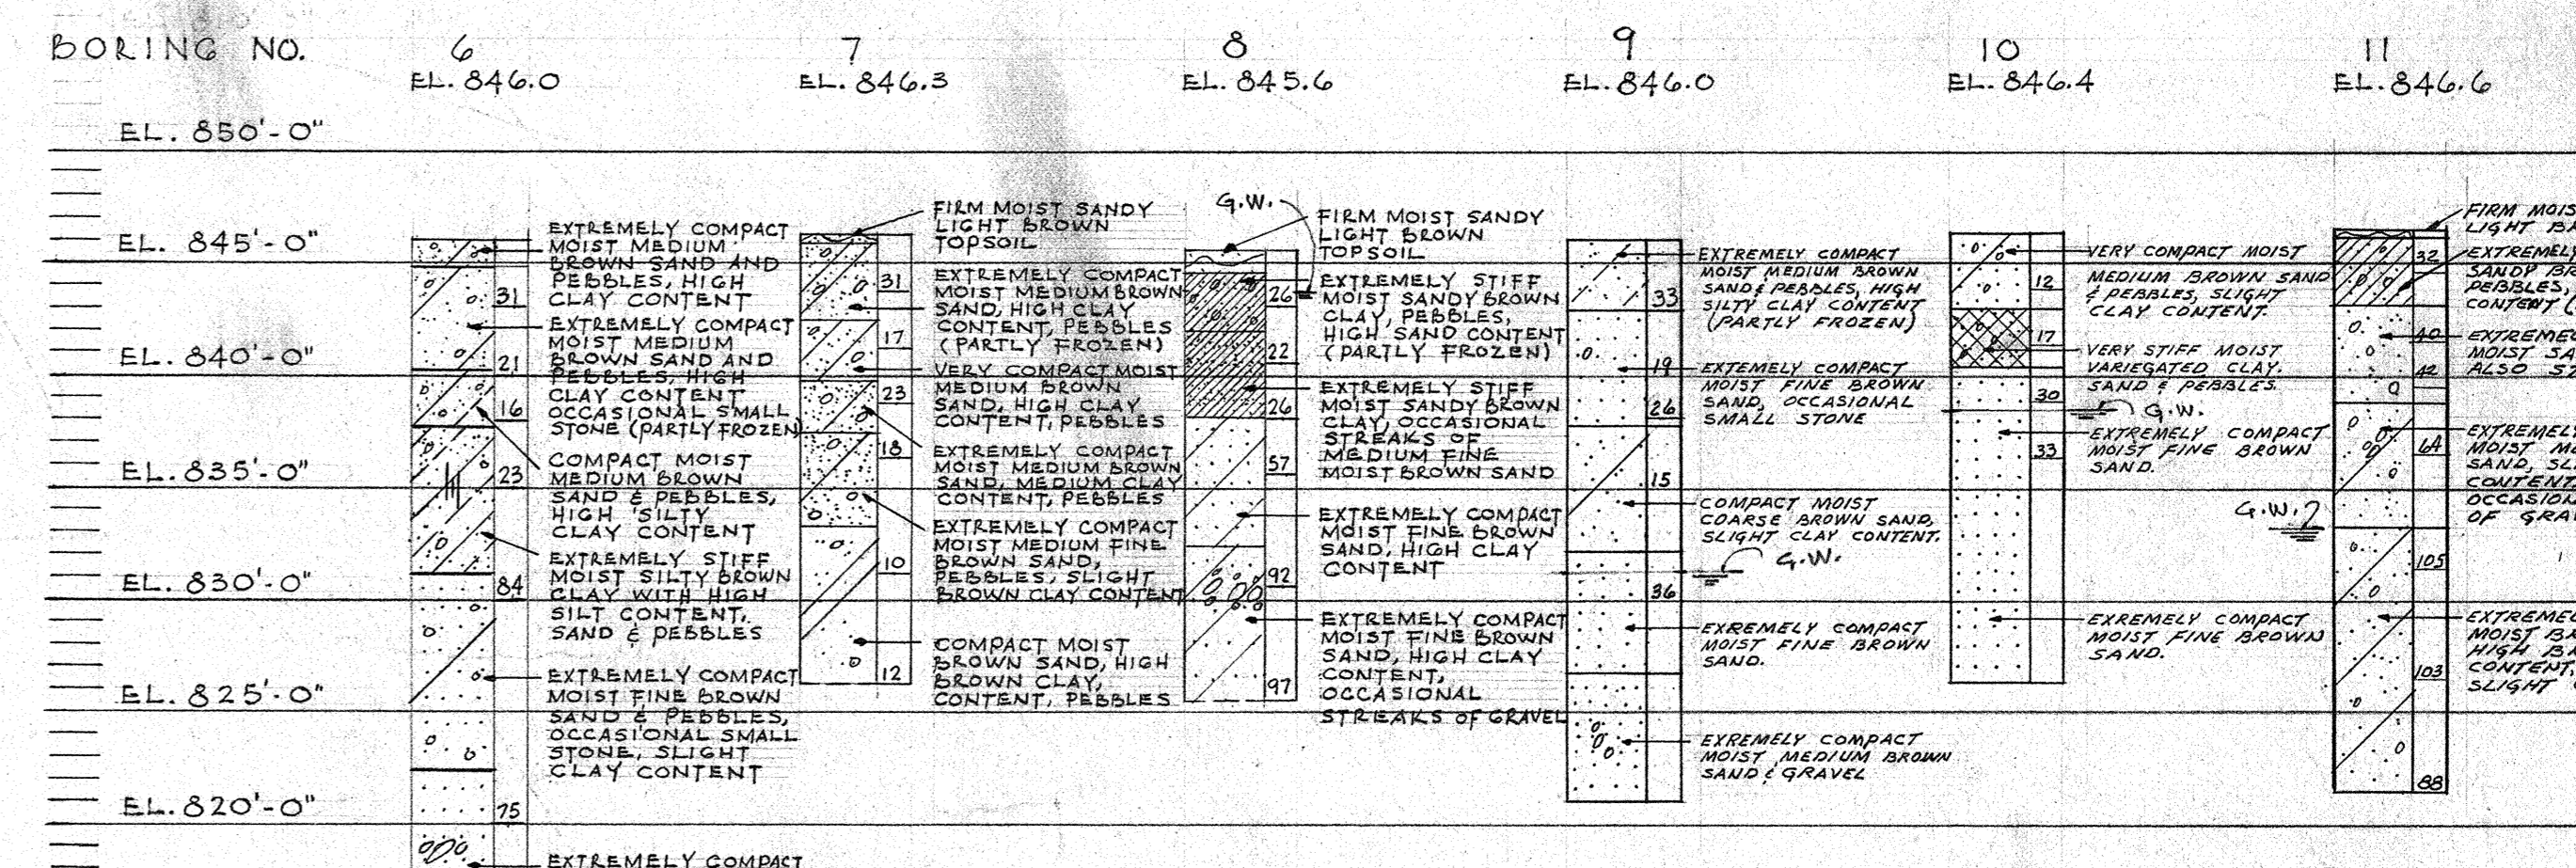 BORING NO.
6
EL. 846.0
7
EL. 846.3
8
EL. 845.6
9
EL. 846.0
10
EL. 846.4
11
EL. 846.6
EL. 850'-0"
EL. 845'-0"
EL. 840'-0"
EL. 835'-0"
EL. 830'-0"
EL. 825'-0"
EL. 820'-0"
31
21
16
23
84
75
EXTREMELY COMPACT
MOIST MEDIUM
BROWN SAND AND
PEBBLES, HIGH
CLAY CONTENT
EXTREMELY COMPACT
MOIST MEDIUM
BROWN SAND AND
PEBBLES, HIGH
CLAY CONTENT
OCCASIONAL SMALL
STONE (PARTLY FROZEN)
COMPACT MOIST
MEDIUM BROWN
SAND & PEBBLES,
HIGH SILTY
CLAY CONTENT
EXTREMELY STIFF
MOIST SILTY BROWN
CLAY WITH HIGH
SILT CONTENT,
SAND & PEBBLES
EXTREMELY COMPACT
MOIST FINE BROWN
SAND & PEBBLES,
OCCASIONAL SMALL
STONE, SLIGHT
CLAY CONTENT
EXTREMELY COMPACT
31
17
23
18
10
12
FIRM MOIST SANDY
LIGHT BROWN
TOPSOIL
EXTREMELY COMPACT
MOIST MEDIUM BROWN
SAND, HIGH CLAY
CONTENT, PEBBLES
(PARTLY FROZEN)
VERY COMPACT MOIST
MEDIUM BROWN
SAND, HIGH CLAY
CONTENT, PEBBLES
EXTREMELY COMPACT
MOIST MEDIUM BROWN
SAND, MEDIUM CLAY
CONTENT, PEBBLES
EXTREMELY COMPACT
MOIST MEDIUM FINE
BROWN SAND,
PEBBLES, SLIGHT
BROWN CLAY CONTENT
COMPACT MOIST
BROWN SAND, HIGH
BROWN CLAY,
CONTENT, PEBBLES
G.W.
26
22
26
57
92
97
FIRM MOIST SANDY
LIGHT BROWN
TOPSOIL
EXTREMELY STIFF
MOIST SANDY BROWN
CLAY, PEBBLES,
HIGH SAND CONTENT
(PARTLY FROZEN)
EXTREMELY STIFF
MOIST SANDY BROWN
CLAY, OCCASIONAL
STREAKS OF
MEDIUM FINE
MOIST BROWN SAND
EXTREMELY COMPACT
MOIST FINE BROWN
SAND, HIGH CLAY
CONTENT
EXTREMELY COMPACT
MOIST FINE BROWN
SAND, HIGH CLAY
CONTENT,
OCCASIONAL
STREAKS OF GRAVEL
33
19
26
15
36
EXTREMELY COMPACT
MOIST MEDIUM BROWN
SAND & PEBBLES, HIGH
SILTY CLAY CONTENT
(PARTLY FROZEN)
EXTEMELY COMPACT
MOIST FINE BROWN
SAND, OCCASIONAL
SMALL STONE
COMPACT MOIST
COARSE BROWN SAND,
SLIGHT CLAY CONTENT.
G.W.
EXREMELY COMPACT
MOIST FINE BROWN
SAND.
EXREMELY COMPACT
MOIST MEDIUM BROWN
SAND & GRAVEL
12
17
30
33
VERY COMPACT MOIST
MEDIUM BROWN SAND
& PEBBLES, SLIGHT
CLAY CONTENT.
VERY STIFF MOIST
VARIEGATED CLAY.
SAND & PEBBLES.
G.W.
EXTREMELY COMPACT
MOIST FINE BROWN
SAND.
EXREMELY COMPACT
MOIST FINE BROWN
SAND.
G.W.
32
40
42
64
105
103
88
FIRM MOIS
LIGHT B
EXTREMELY
SANDY BR
PEBBLES,
CONTENT (
EXTREMEL
MOIST SA
ALSO ST
EXTREMELY
MOIST M
SAND, SL
CONTENT,
OCCASION
OF GRA
EXTREMEL
MOIST BR
HIGH B
CONTENT,
SLIGHT